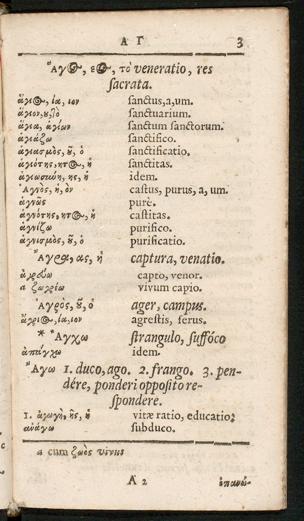 ΑΓ 3
Ἄγος, εος, τὸ veneratio, res
sacrata.
ἅγιος, ία, ιον sanctus, a, um.
ἅγιον, ου, τὸ sanctuarium.
ἅγια, ἁγίων sanctum sanctorum.
ἁγιάζω sanctifico.
ἁγιασμὸς, οῦ, ὁ sanctificatio.
ἁγιότης, ητος, ἡ sanctitas.
ἁγιωσύνη, ης, ἡ idem.
Ἁγνὸς, ὴ, ὸν castus, purus, a, um.
ἁγνῶς purè.
ἁγνότης, ητος, ἡ castitas.
ἁγνίζω purifico.
ἁγνισμὸς, οῦ, ὁ purificatio.
Ἄγρα, ας, ἡ captura, venatio.
ἀγρεύω capto, venor.
a ζωγρέω vivum capio.
Ἀγρὸς, οῦ, ὁ ager, campus.
ἄγριος, ία, ιον agrestis, ferus.
* Ἄγχω strangulo, suffóco
ἀπάγχω idem.
Ἄγω 1. duco, ago. 2. frango. 3. pen-
dére, ponderi opposito re-
spondere.
1. ἀγωγὴ, ῆς, ἡ vitæ ratio, educatio;
ἀνάγω subduco.
a cum ζωὸς vivus
A 2 ἐπανά-